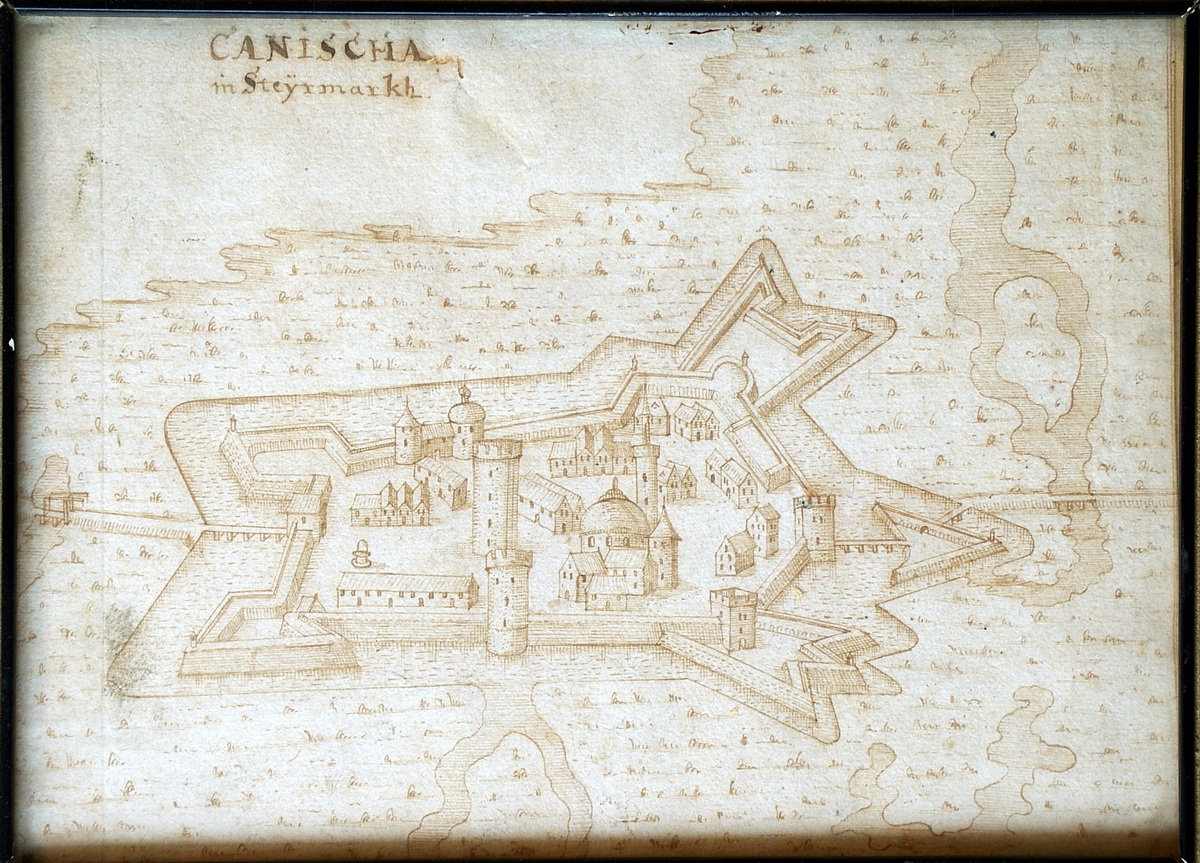 CANISCHA
in Steÿrmarkh.